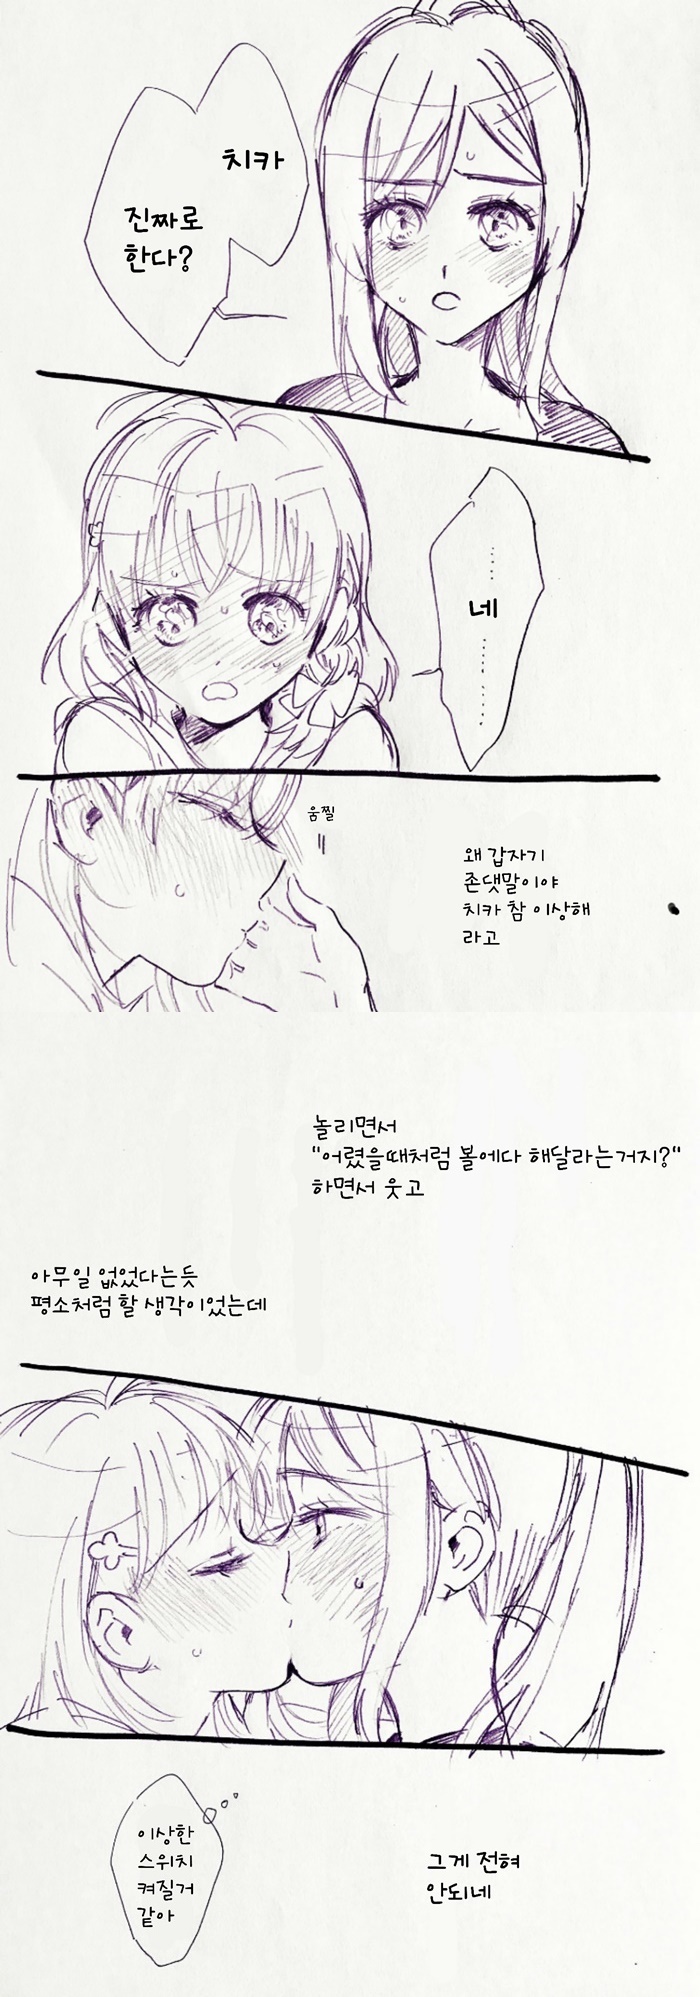 치카
진짜로
한다?
……
네
………
움찔
왜 갑자기
존댓말이야
치카 참 이상해
라고
놀리면서
"어렸을때처럼 볼에다 해달라는거지?"
하면서 웃고
아무일 없었다는듯
평소처럼 할 생각이었는데
이상한
스위치
켜질거
같아
그게 전혀
안되네